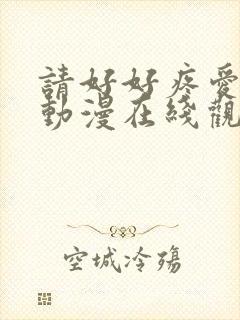 請好好疼愛
動漫在綫觀
空城冷殤